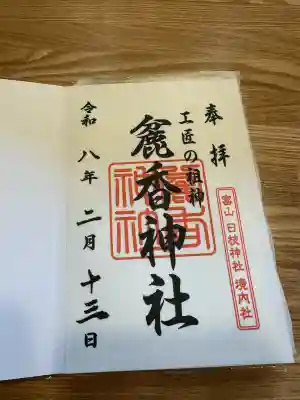 奉拝
工匠の祖神
麁香神社
富山 日枝神社 境内社
令和八年二月十三日